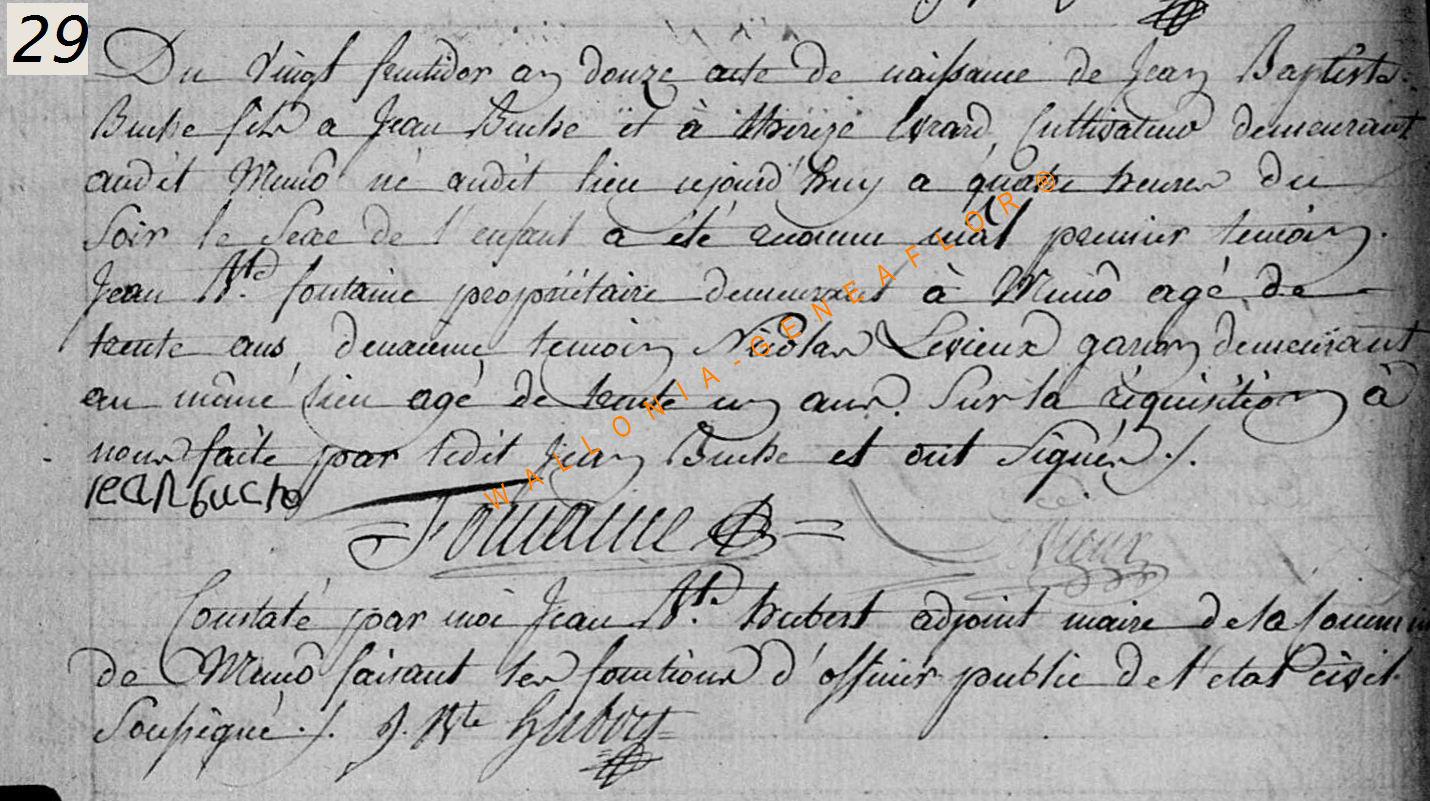 29
Du vingt fructidor an douze acte de naissance de Jean Baptiste
Buche fils a Jean Buche et à thereze Evrard Cultivateur demeurant
audit Muno né audit lieu cejourd'huy a quatre heures du
Soir le Sexe de l'enfant a été reconnu mâl premier temoin
Jean Bte. fontaine propriétaire demeurant à Muno agé de
trente ans, deuxieme temoin Nicolas Levieux garçon demeurant
au même lieu agé de trente un ans. Sur la réquisition à
nous faite par ledit Jean Buche et ont Signés ./.
jean buche
Fontaine
Constaté par moi Jean Bte. hubert adjoint maire de la Commune
de Muno faisant les fonctions d'officier public de l'etat civil
Soussigné ./. J. Bte hubert
WALLONIA-GENEAFLOR®